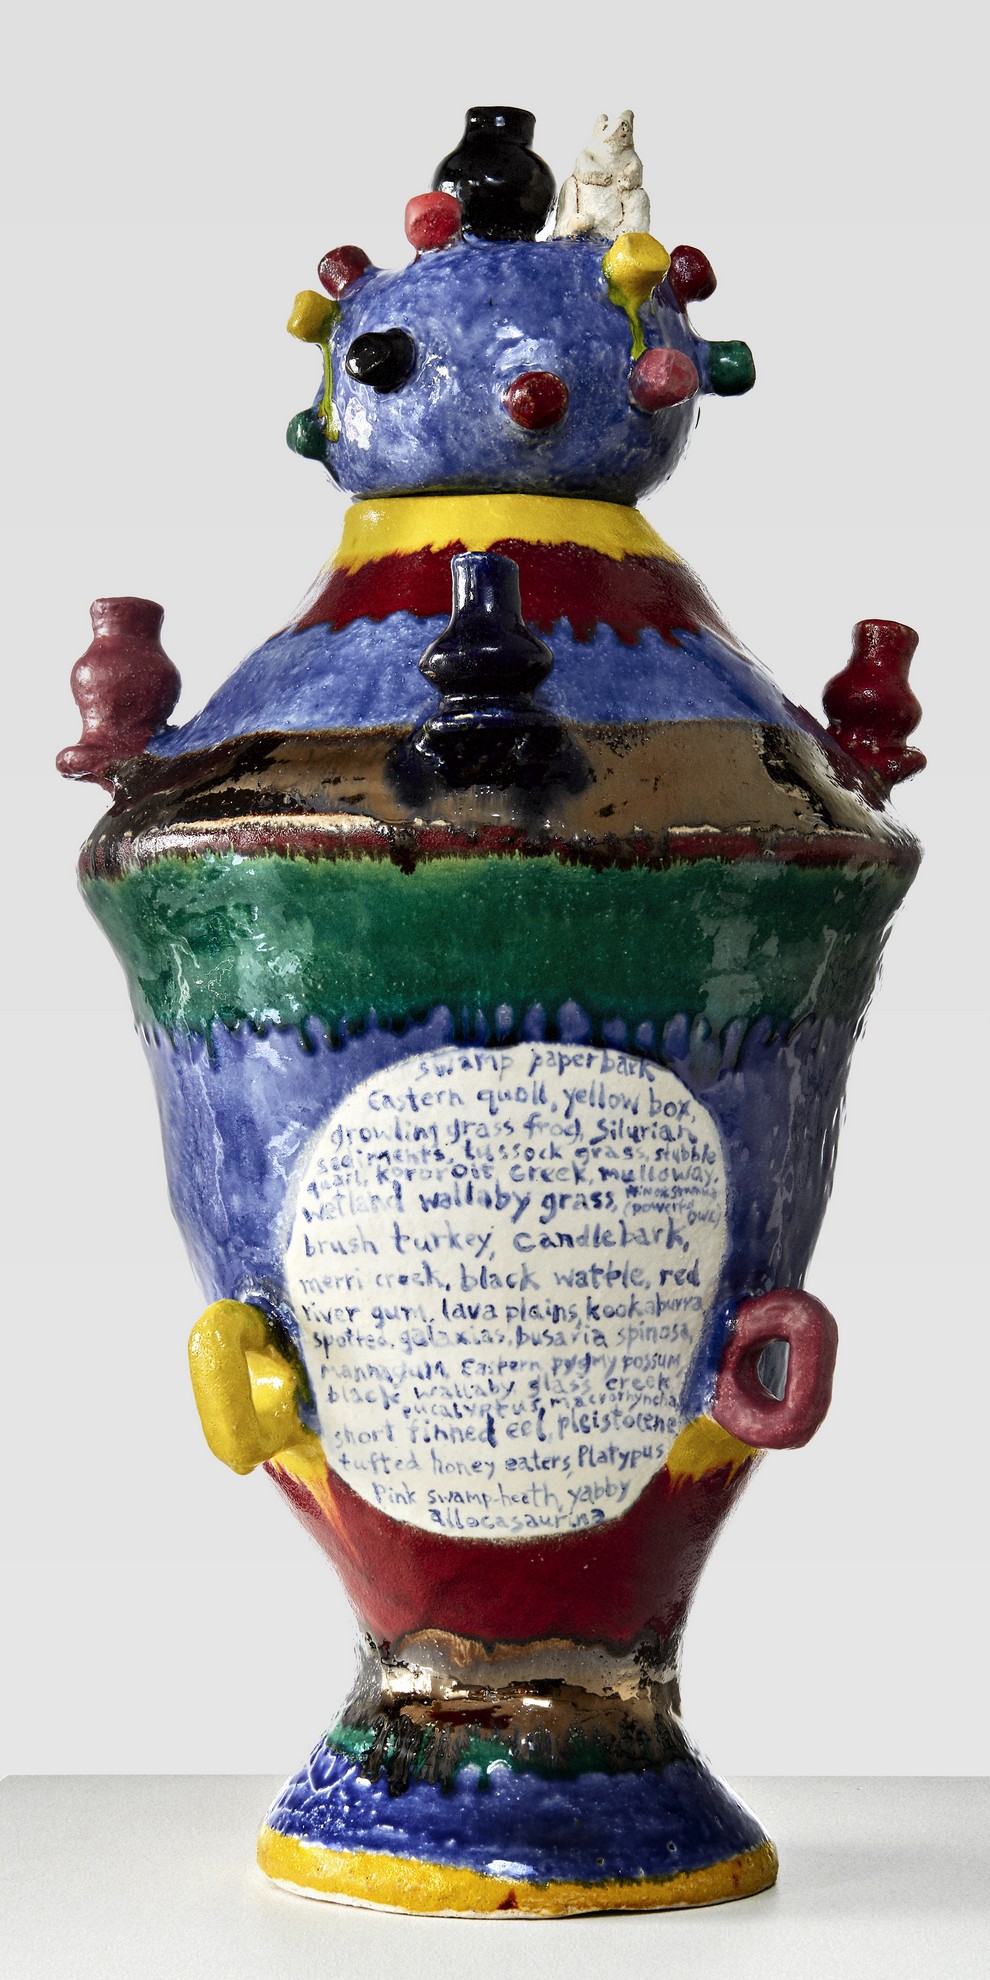 swamp paperbark
Eastern quoll, yellow box,
growling grass frog, Silurian
sediments, tussock grass, stubble
quail, kororoit creek, mulloway,
wetland wallaby grass, Ninox strenua,
(powerful
owl)
brush turkey, candlebark,
merri creek, black wattle, red
river gum, lava plains, kookaburra,
spotted galaxias, busaria spinosa,
mannagum, Eastern pygmy possum
black wallaby, glass creek,
eucalyptus, macrorhyncha,
short finned eel, pleistocene
tufted honey eaters, Platypus
Pink swamp-heath, yabby
allocasaurina